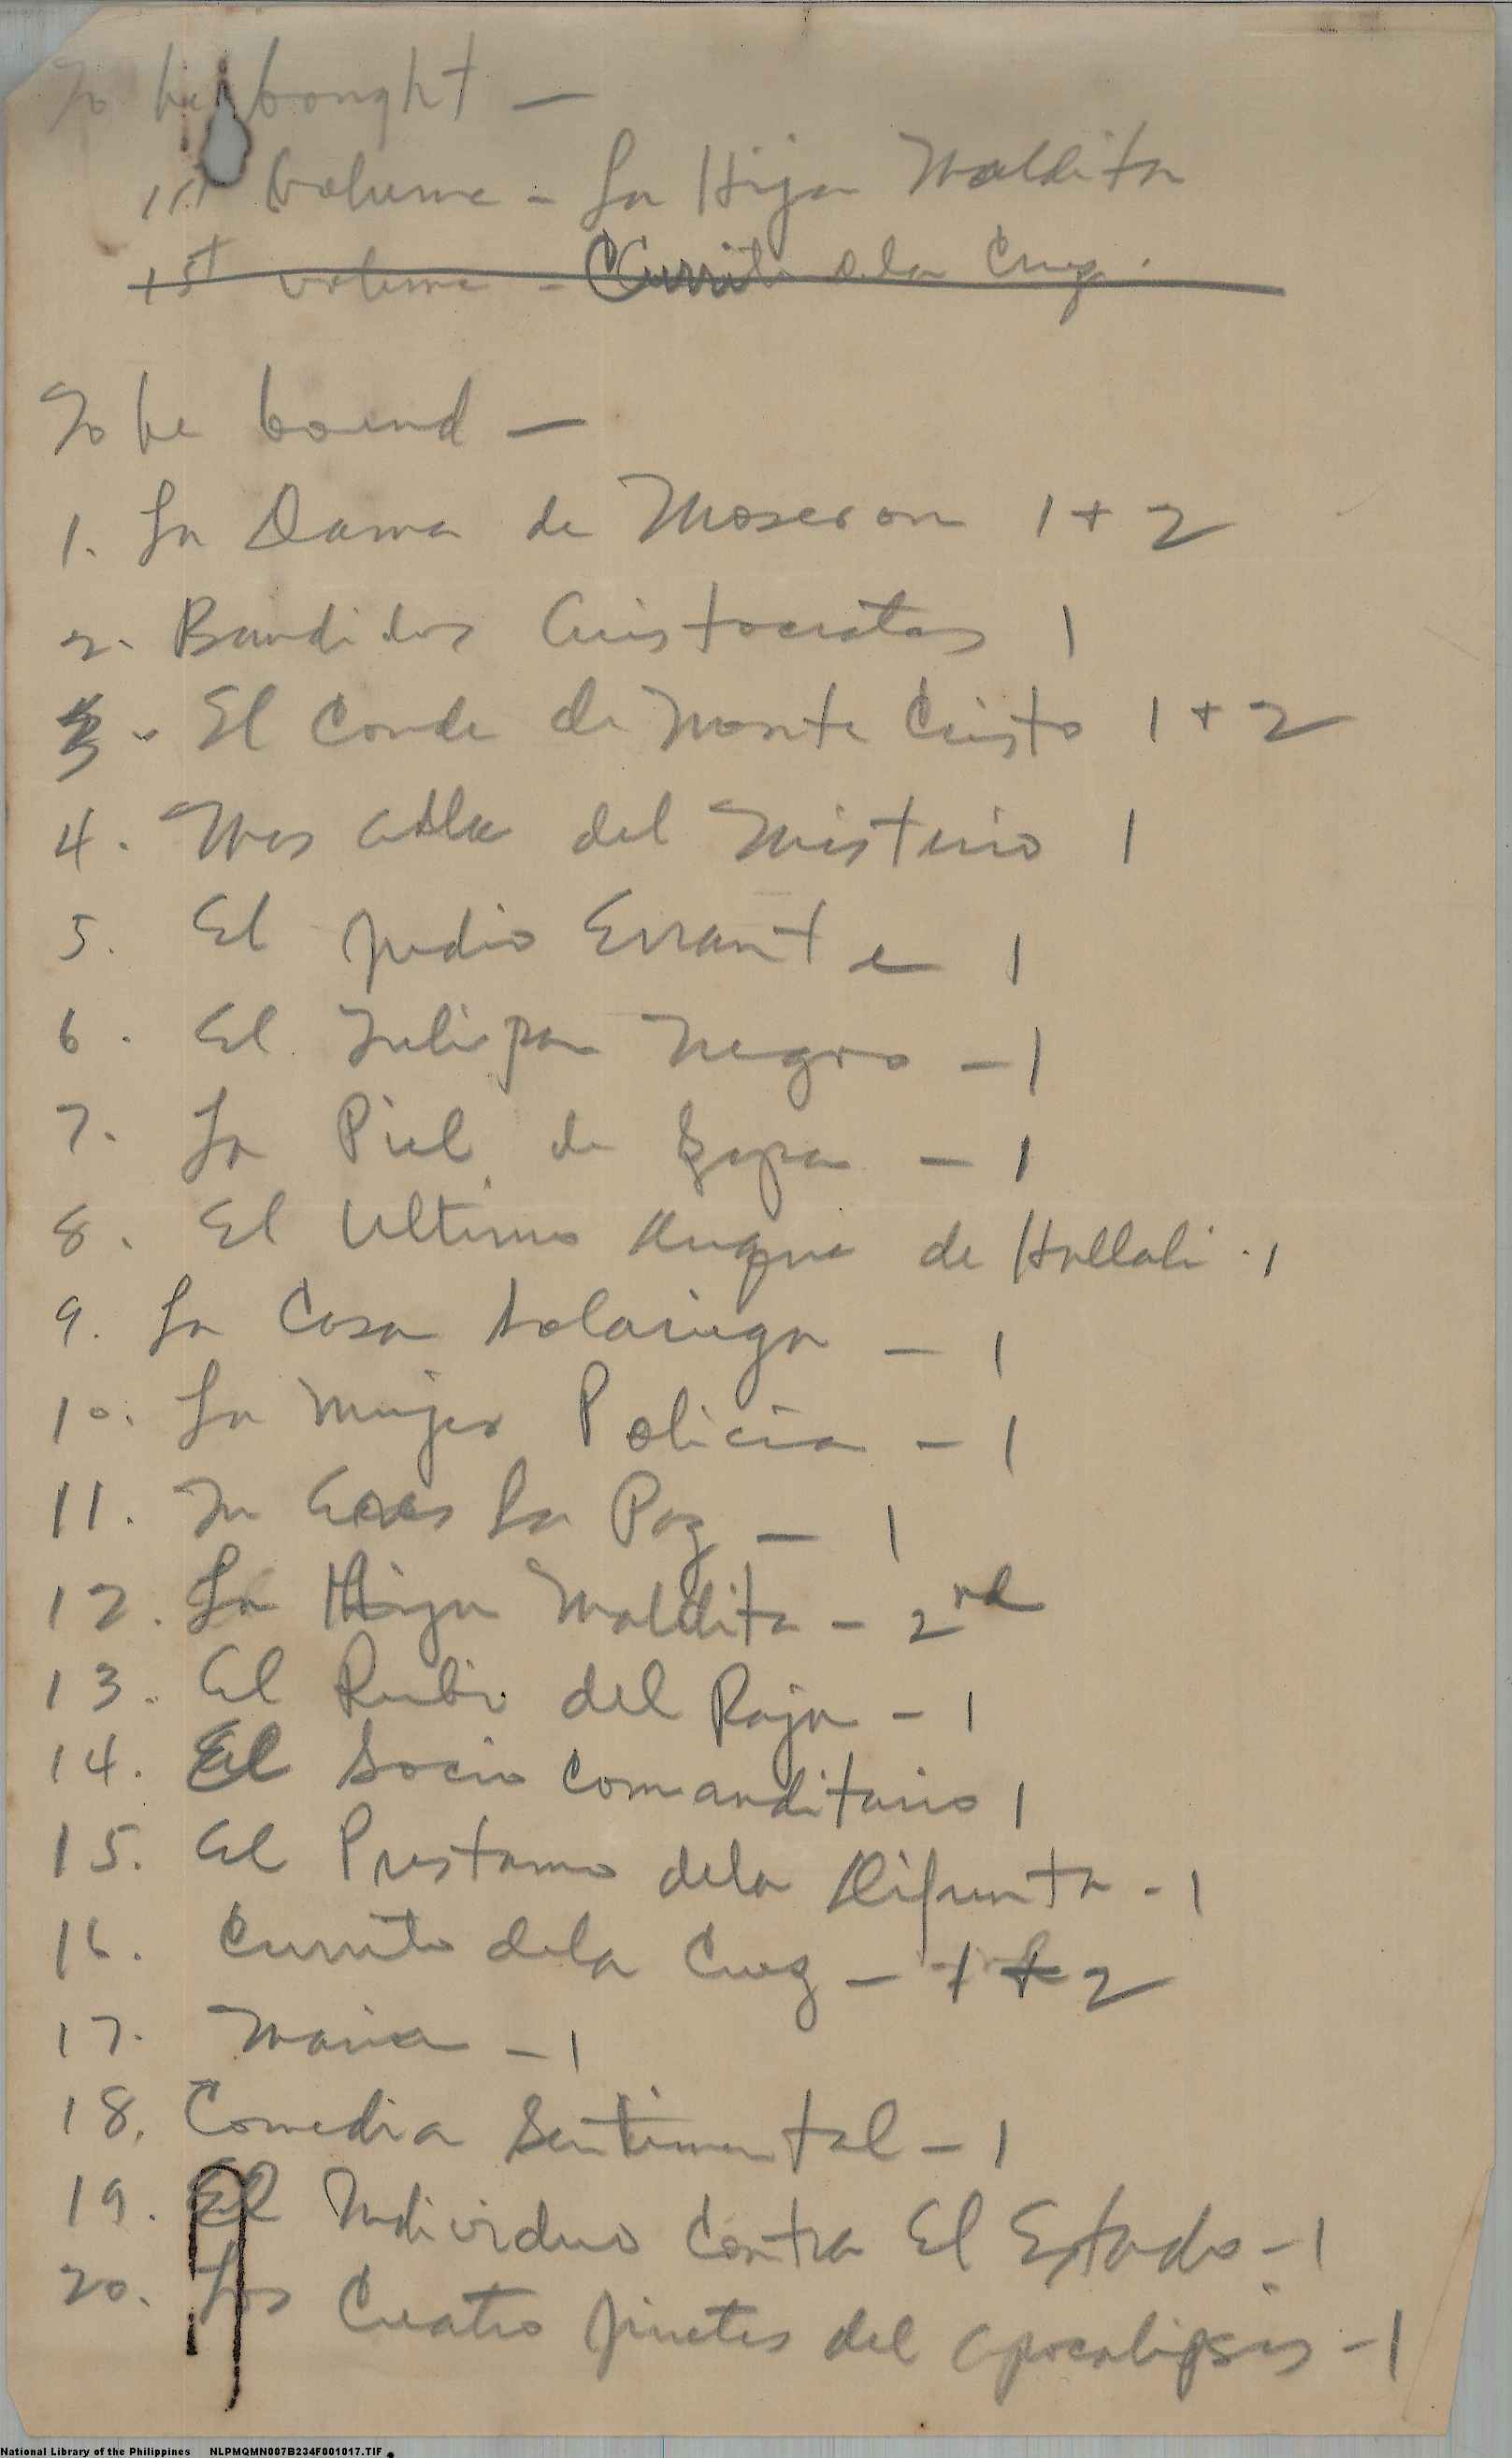 To be bought —
1st Volume - La Hija Maldita
1st volume - Currito dela Cruz.
To be bound —
1. La Dama de Monsoron 1 + 2
2. Bandidos Aristocratas 1
3. El Conde de Monte Cristo 1 + 2
4. Mas alla del Misterio 1
5. El Judio Errante 1
6. El Tulipan Negro - 1
7. La Piel de Zapa - 1
8. El Ultimo Duque de Hallali - 1
9. La Casa Solariega - 1
10. La Mujer Policia - 1
11. Tu Eres La Paz - 1
12. La Hija Maldita - 2nd
13. El Rubi del Raja - 1
14. El Socio Comanditario 1
15. El Prestamo dela Difunta - 1
16. Currito dela Cruz - 1 + 2
17. Maria - 1
18. Comedia Sentimental - 1
19. El Individuo Contra El Estado - 1
20. Los Cuatro Jinetes del Apocalipsis - 1
National Library of the Philippines NLPMQMN007B234F001017.TIF